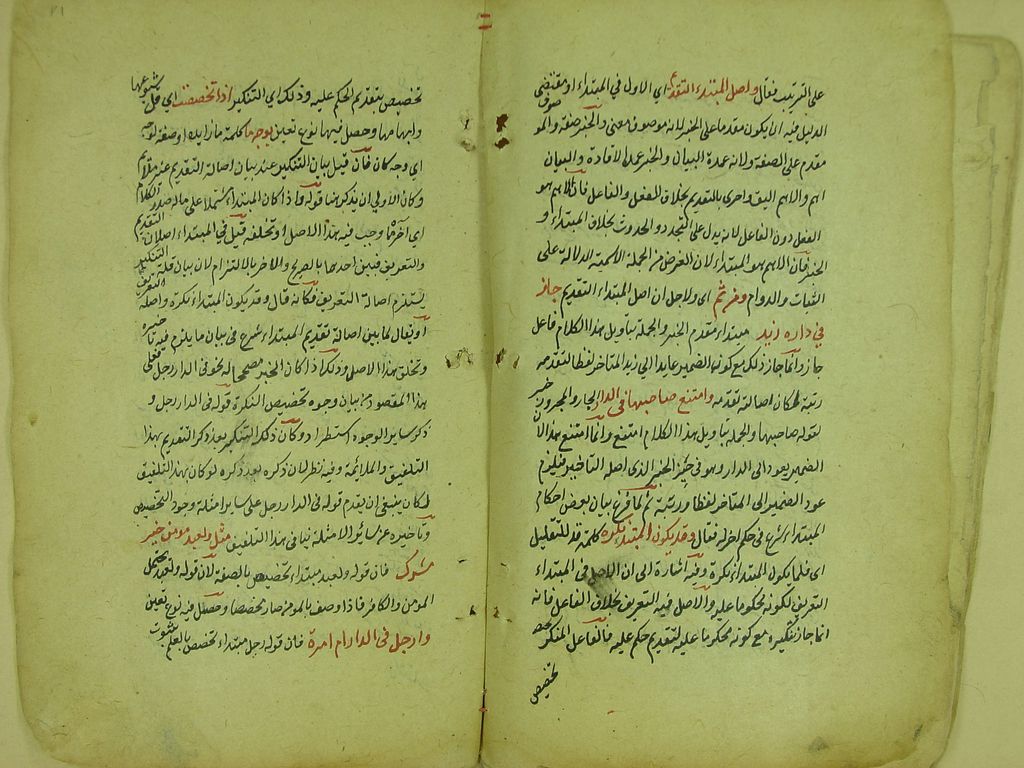 على الترتيب فقال واصل المبتداء التقديم اى الاولى فى المبتداء او مقتضى
الدليل فيه ان يكون مقدما على الخبر لانه موصوف معنى والخبر صفة والموصوف
مقدم على الصفة ولانه عمدة البيان والخبر عمدة الافادة والبيان
اهم والاهم اليق واحرى بالتقديم بخلاف الفعل والفاعل فان الاهم هو
الفعل دون الفاعل لانه يدل على التجدد والحدوث بخلاف المبتداء و
الخبر فان الاهم هو المبتداء لان الغرض من الجملة الاسمية الدلالة على
الثبات والدوام ومن ثم اى ولاجل ان اصل المبتداء التقديم جاز
فى داره زيد مبتداء مقدم الخبر والجملة بتاويل هذا الكلام فاعل
جاز وانما جاز ذلك مع كون الضمير عايدا الى زيد المتاخر لفظا لتقدمه
رتبة لمكان اصالة تقدمه وامتنع صاحبها فى الدار الجار والمجرور خبر
لقوله صاحبها والجملة بتاويل هذا الكلام امتنع وانما امتنع هذا لان
الضمير يعود الى الدار وهو فى حيز الخبر الذى اصله التاخير فيلزم
عود الضمير الى المتاخر لفظا ورتبة ثم لما فرغ بيان بعض احكام
المبتداء شرع فى حكم اخر له فقال وقد يكون المبتداء نكرة كلمة قد للتقليل
اى قلما يكون المبتداء نكرة وفيه اشارة الى ان الاصل فى المبتداء
التعريف لكونه محكوما عليه والاصل فيه التعريف بخلاف الفاعل فانه
انما جاز تنكيره مع كونه محكوما عليه لتقديم حكم عليه فالفاعل المنكر
تخصيص
تخصيص بتقديم الحكم عليه وذلك اى التنكير اذا تخصصت اى قل شيوعها
وابهامها وحصل فيها نوع تعين بوجه ما كلمة ما زايدة او صفة لوجه
اى وجه كان فان قيل بيان التنكير عند بيان اصالة التقديم غير ملايم
وكان الاولى ان يذكر هنا قوله واذا كان المبتداء مشتملا على ماله صدر الكلام
اى آخره ما وجب فيه هذا الاصل او تخلفه قيل فى المبتداء اصلان التقديم
والتعريف فبين احدهما بالصريح والآخر بالالتزام لان بيان قلة التنكير
يستلزم اصالة التعريف فكانه قال وقد يكون المبتداء نكرة واصله التعريف
او يقال لما بين اصالة تقديم المبتداء شرع فى بيان ما يلزم فيه تاخيره
وتخلف هذا الاصل وذلك اذا كان الخبر مصححا له نحو فى الدار رجل فعلى
هذا المقصود من بيان وجوه تخصيص النكرة قوله فى الدار رجل و
ذكر ساير الوجوه استطراد وكان ذكر التنكير بعد ذكر التقديم بهذا
التلفيق والملائمة وفيه نظر لان ذكره بعد ذكره لو كان بهذا التلفيق
لكان ينبغى ان يقدم قوله فى الدار رجل على ساير امثلة وجوه التخصيص
وتاخيره عن سائر الامثلة ينافى هذا التلفيق مثل ولعبد مومن خير
من مشرك فان قوله ولعبد مبتداء تخصيص بالصفة لان قوله ولعبد يحتمل
المومن والكافر فاذا وصف بالمومن صار مخصصا وحصل فيه نوع تعين
وارجل فى الدار ام امرة فان قوله رجل مبتداء تخصص بالعلم بثبوت